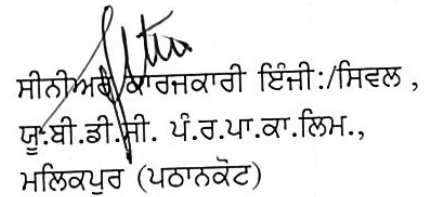 ਸੀਨੀਅਰ ਕਾਰਜਕਾਰੀ ਇੰਜੀ:/ਸਿਵਲ ,
ਯੂ.ਬੀ.ਡੀ.ਸੀ. ਪੰ.ਰ.ਪਾ.ਕਾ.ਲਿਮ.,
ਮਲਿਕਪੁਰ (ਪਠਾਨਕੋਟ)